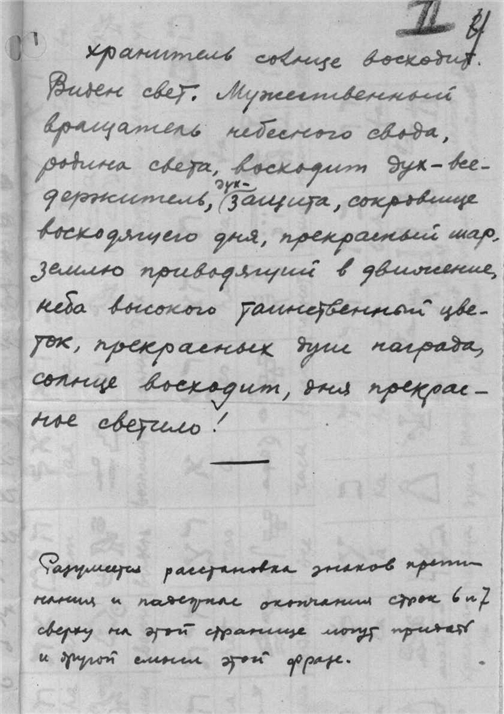 II
хранитель солнце восходит.
Виден свет. Мужественный
вращатель небесного свода,
родина света, восходит дух-все-
дух-
держитель, (защита, сокровище
восходящего дня, прекрасный шар,
землю приводящий в движение,
неба высокого таинственный цве-
ток, прекрасных душ награда,
солнце восходит, дня прекрас-
ное светило!
Разумеется расстановка знаков препи-
нания и падежные окончания строк 6 и 7
сверху на этой странице могут придать
и другой смысл этой фразе.